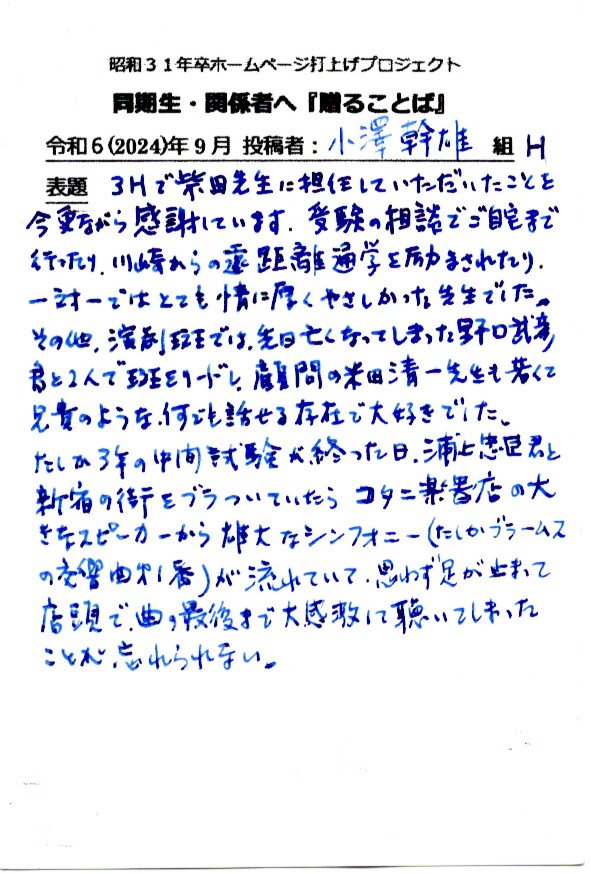 昭和３１年卒ホームページ打上げプロジェクト
同期生・関係者へ『贈ることば』
令和６(2024)年９月 投稿者： 小澤幹雄 組 H
表題 3Hで柴田先生に担任していただいたことを
今更ながら感謝しています. 受験の相談でご自宅まで
行ったり, 川崎からの遠距離通学を励まされたり.
一対一ではとても情に厚くやさしかった先生でした。
その他, 演劇班では, 先日亡くなってしまった野口武彦
君と2人で班をリードし, 顧問の米田清一先生も若くて
兄貴のような, 何でも話せる存在で大好きでした.
たしか3年の中間試験が終った日, 浦上忠臣君と
新宿の街をブラついていたら コタニ楽器店の大
きなスピーカーから 雄大なシンフォニー(たしかブラームス
の交響曲才1番)が流れていて, 思わず足が止まって
店頭で, 曲の最後まで大感激して聴いてしまった
ことが, 忘れられない。